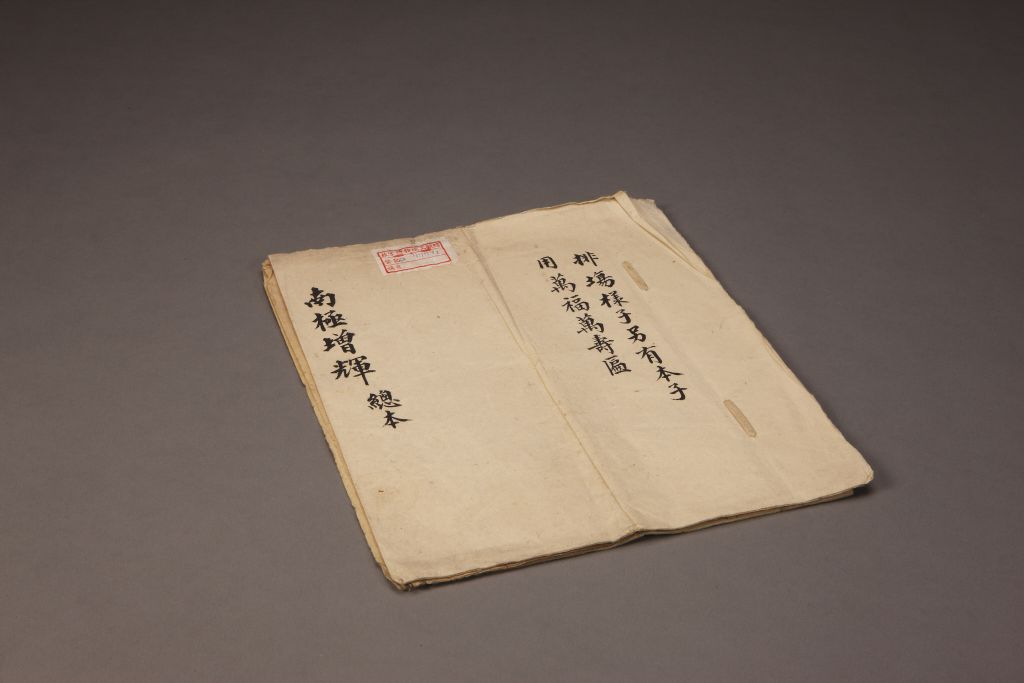 排塲樣子另有本子
用萬福萬壽匾
南極增輝 總本